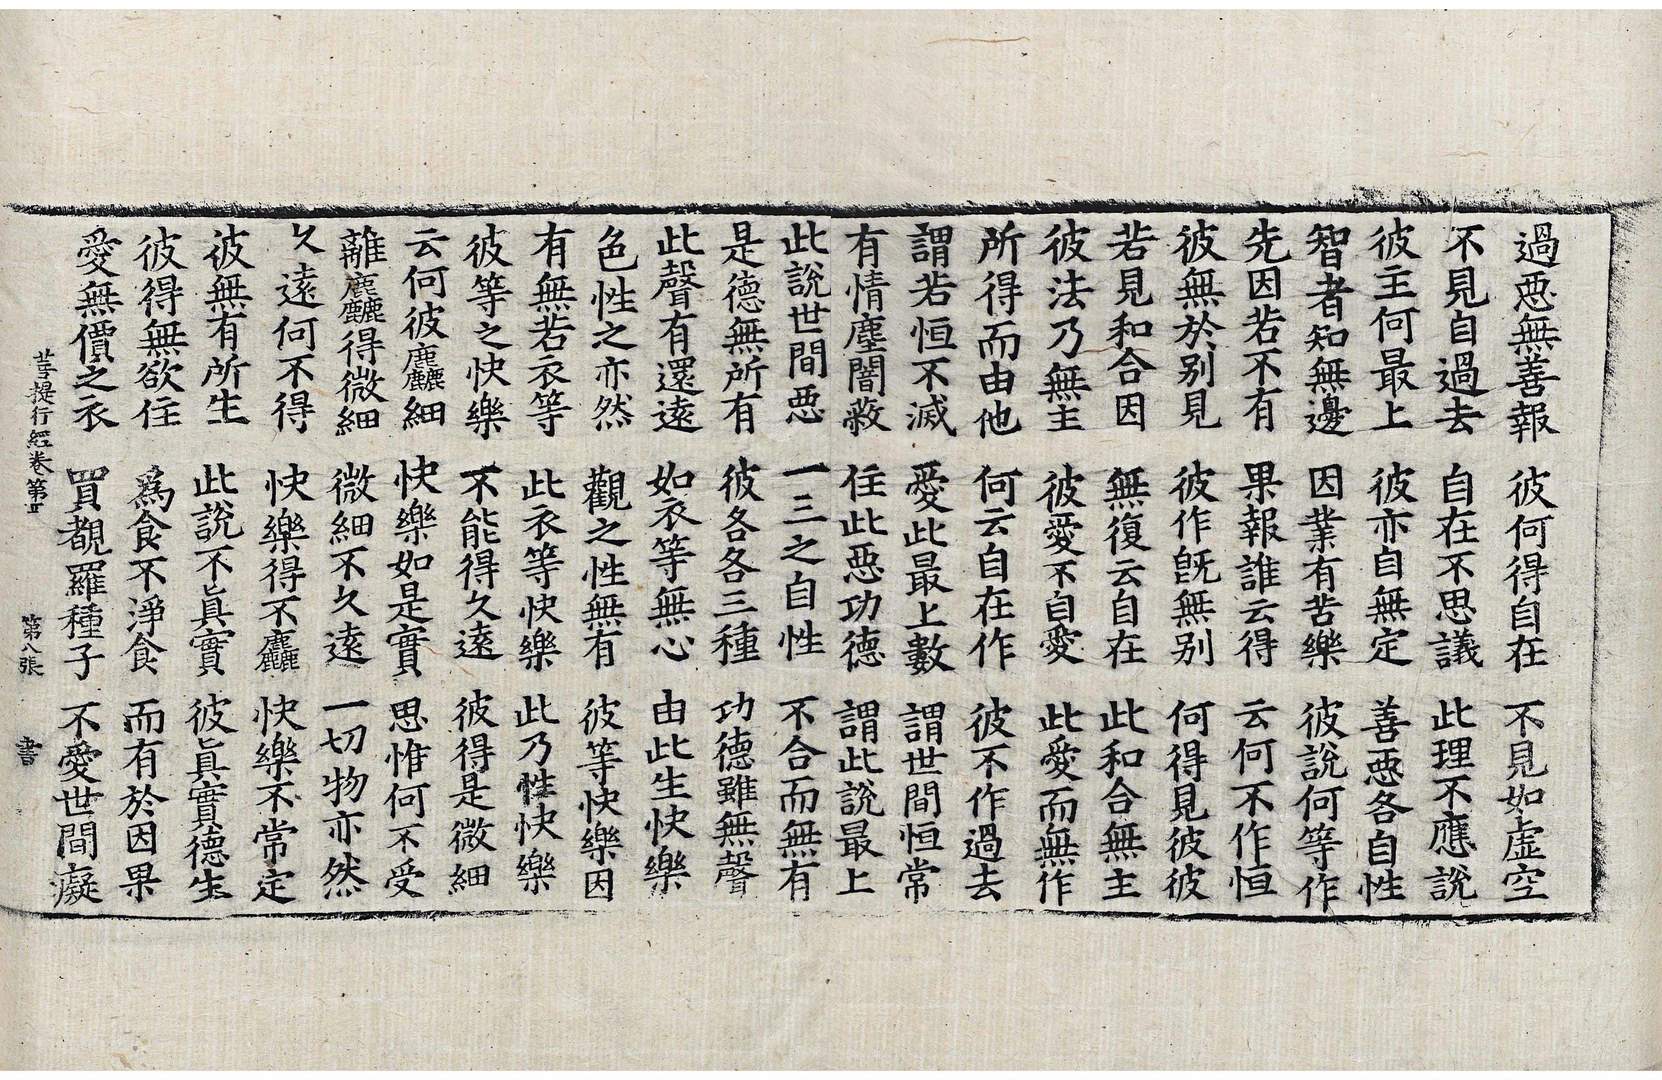 過惡無善報　彼何得自在　不見如虛空
不見自過去　自在不思議　此理不應說
彼主何最上　彼亦自無定　善惡各自性
智者知無邊　因業有苦樂　彼說何等作
先因若不有　果報誰云得　云何不作恒
彼無於別見　彼作旣無別　何得見彼彼
若見和合因　無復云自在　此和合無主
彼法乃無主　彼愛不自愛　此愛而無作
所得而由他　何云自在作　彼不作過去
謂若恒不滅　愛此最上數　謂世間恒常
有情塵闇蔽　住此惡功德　謂此說最上
此說世間惡　一三之自性　不合而無有
是德無所有　彼各各三種　功德雖無聲
此聲有還遠　如衣等無心　由此生快樂
色性之亦然　觀之性無有　彼等快樂因
有無若衣等　此衣等快樂　此乃性快樂
彼等之快樂　不能得久遠　彼得是微細
云何彼麤細　快樂如是實　思惟何不受
離麤得微細　微細不久遠　一切物亦然
久遠何不得　快樂得不麤　快樂不常定
彼無有所生　此說不眞實　彼眞實德生
彼得無欲住　爲食不淨食　而有於因果
愛無價之衣　買覩羅種子　不愛世間癡
菩提行經卷第四　第八張　書